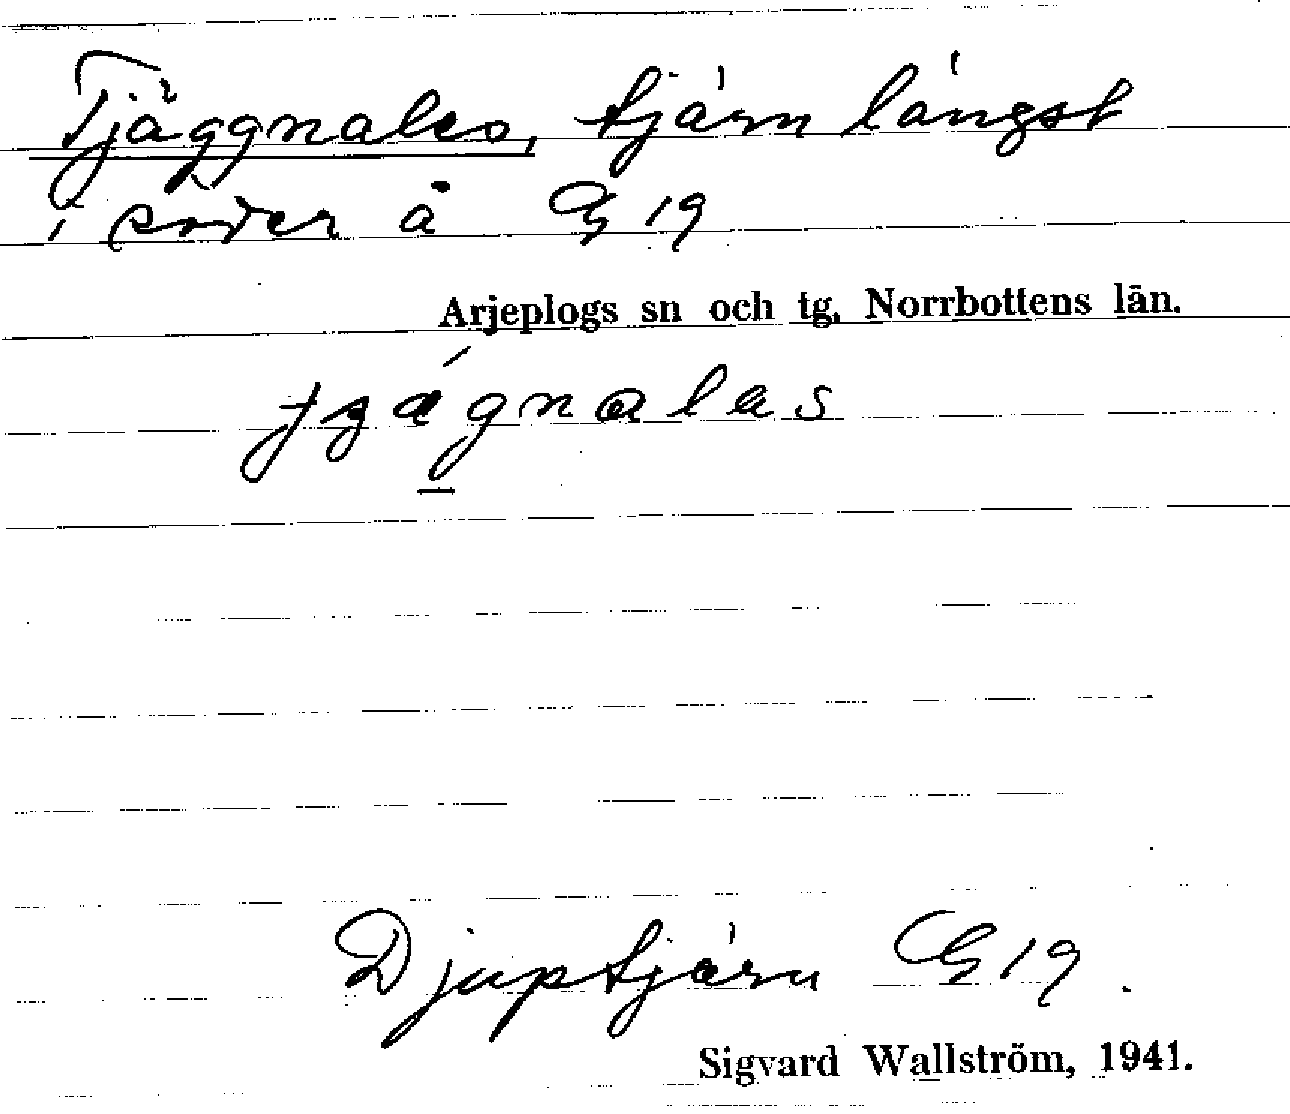 Tjäggnales, tjärn längst
i söder å G 19
Arjeplogs sn och tg. Norrbottens län.
Djuptjärn G 19.
Sigvard Wallström, 1941.